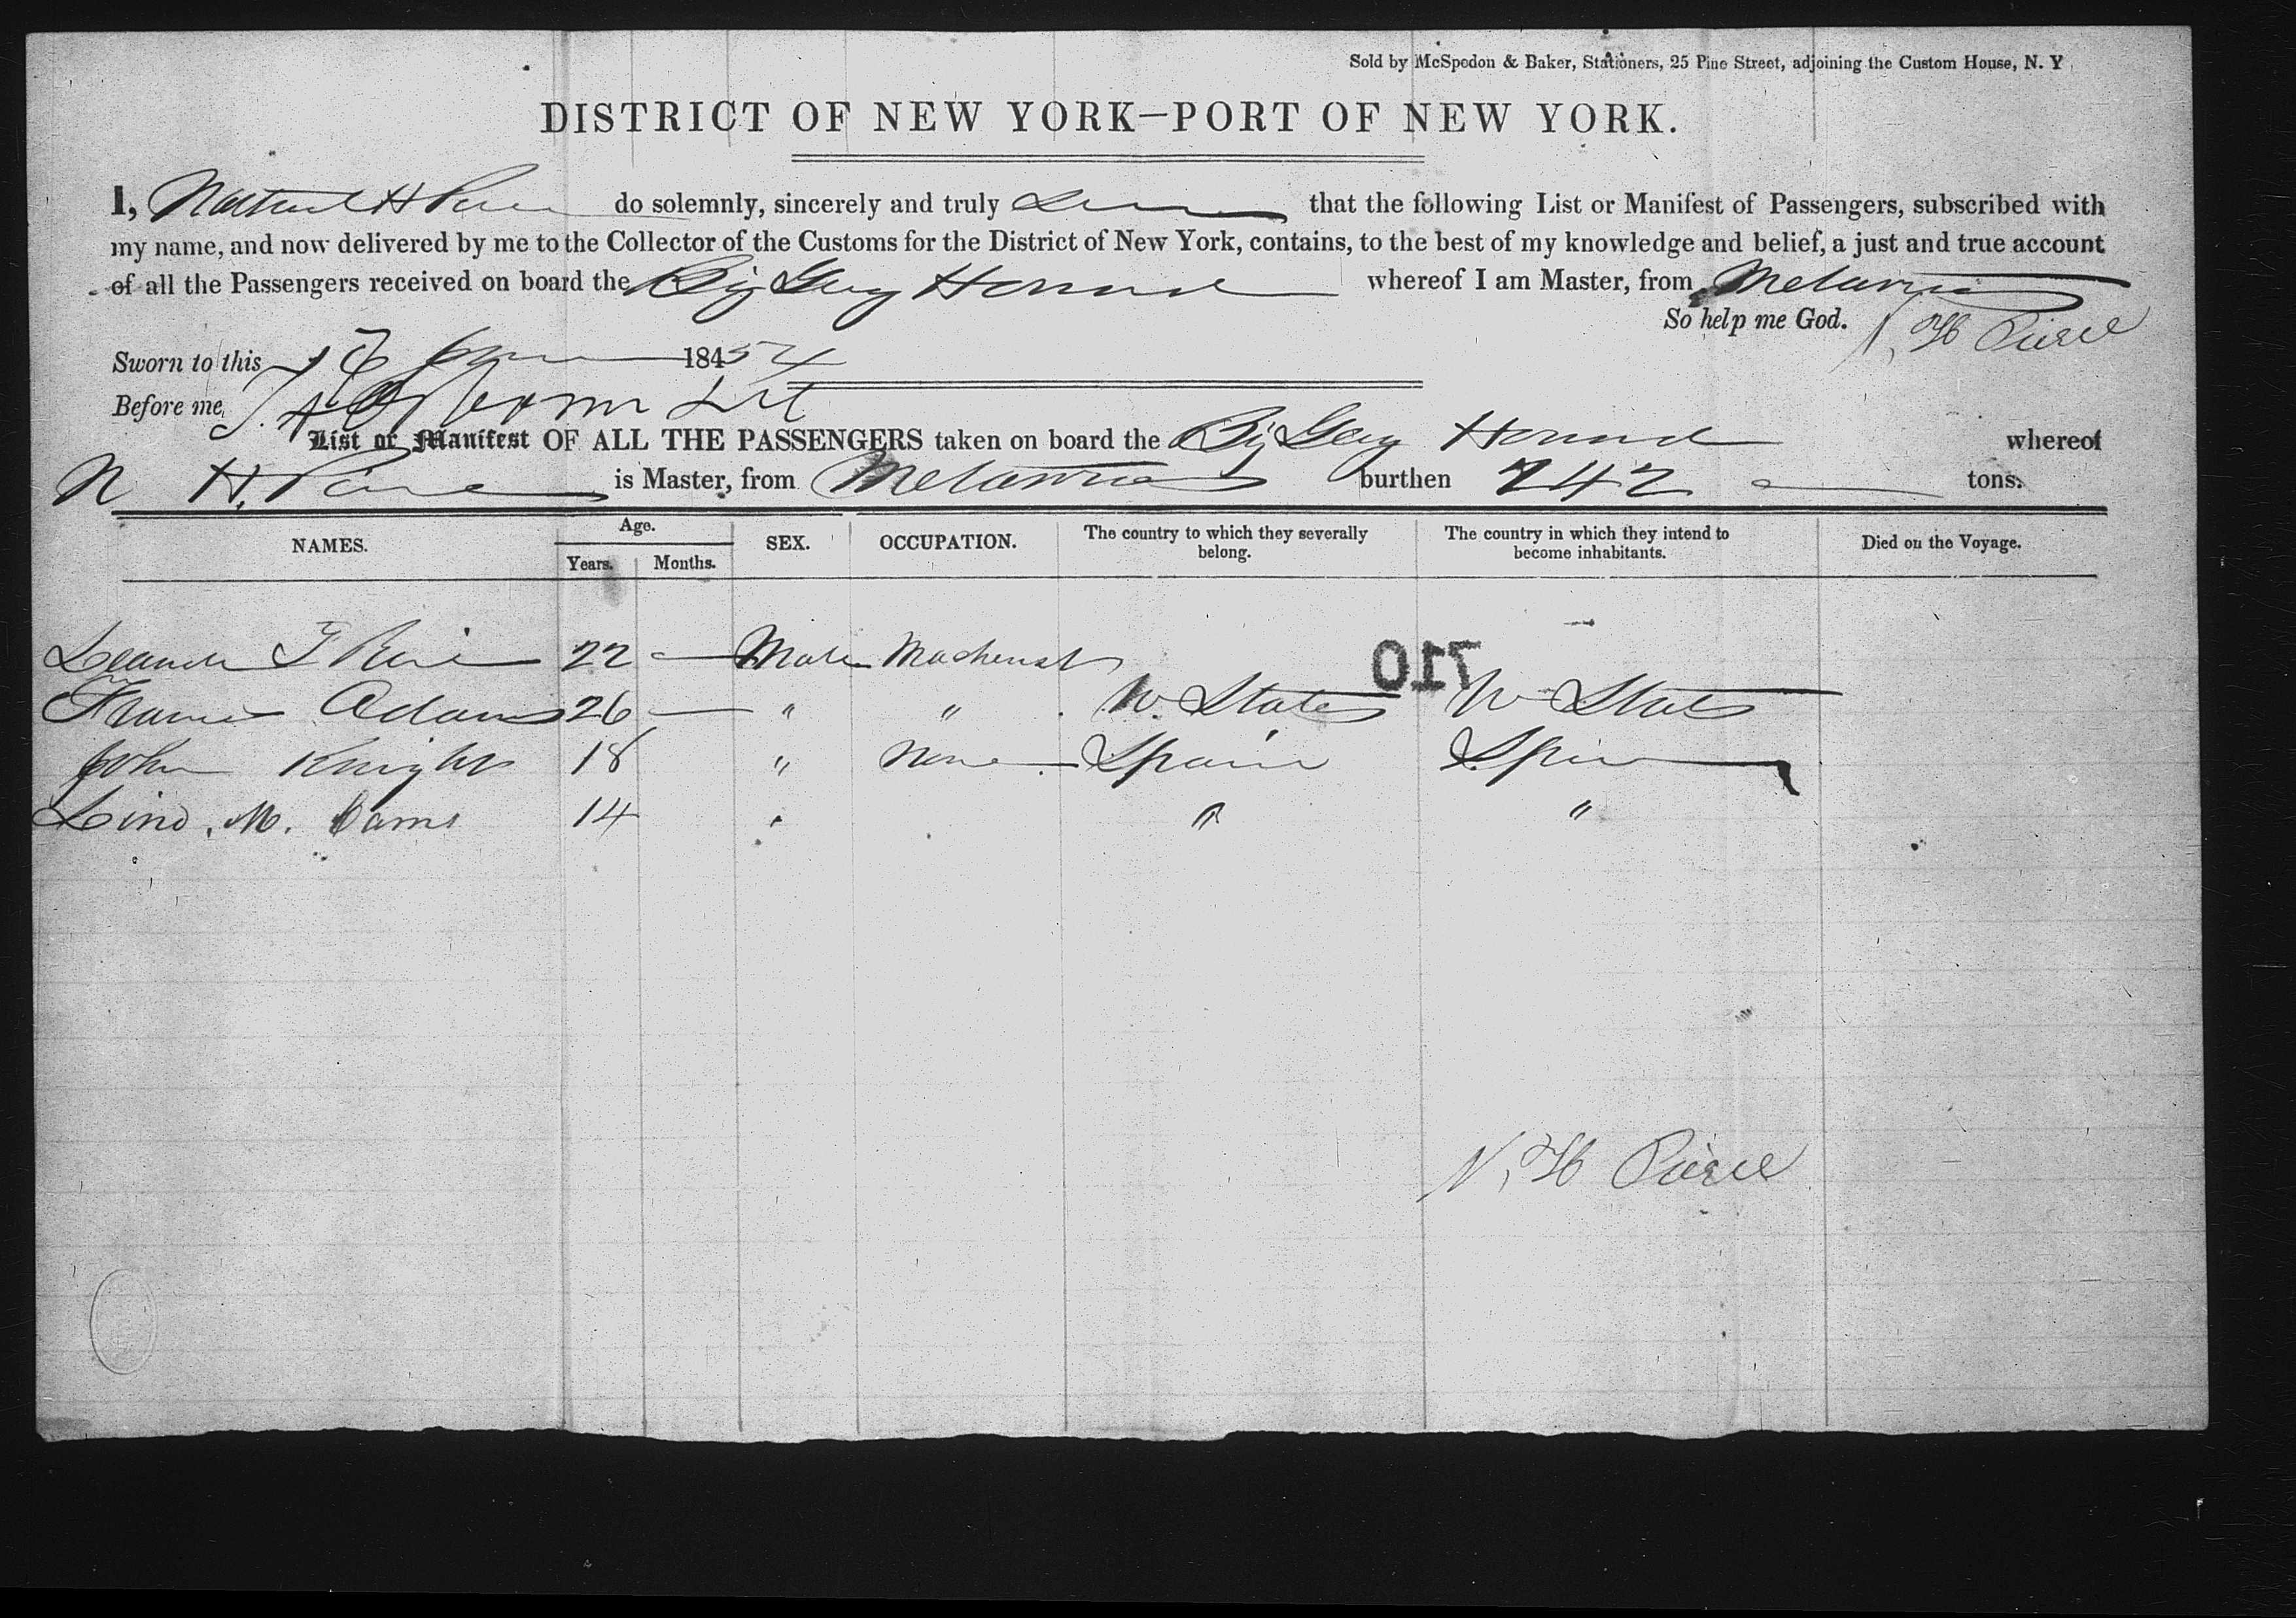 Sold by McSpedon & Baker, Stationers, 25 Pine Street, adjoining the Custom House, N. Y
DISTRICT OF NEW YORK—PORT OF NEW YORK.
I, H do solemnly, sincerely and truly that the following List or Manifest of Passengers, subscribed with
my name, and now delivered by me to the Collector of the Customs for the District of New York, contains, to the best of my knowledge and belief, a just and true account
of all the Passengers received on board the whereof I am Master, from
So help me God. N, H Pierce
Sworn to this 184 54
Before me,
List or Manifest OF ALL THE PASSENGERS taken on board the whereof
N H. is Master, from burthen 242 tons.
NAMES. Age. Years. Months. SEX. OCCUPATION. The country to which they severally belong. The country in which they intend to become inhabitants. Died on the Voyage.
710
22 Male Machenist
Francis Adams 26 " " U. States U States
John Knight 18 " None Spain Spain
Lino. M. 14 " "
N, H Pierce